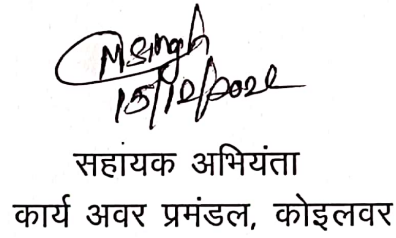 MSingh
15/12/2022
सहायक अभियंता
कार्य अवर प्रमंडल, कोइलवर